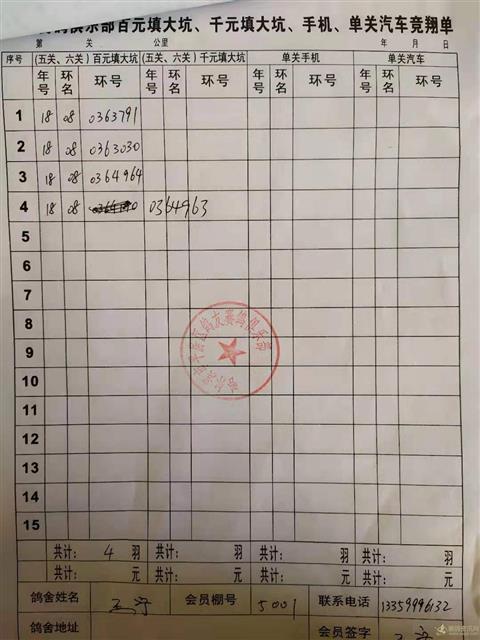 俱乐部百元填大坑、千元填大坑、手机、单关汽车竞翔单
第 关 公里 年 月 日
序号 (五关、六关)百元填大坑 (五关、六关)千元填大坑 单关手机 单关汽车
年号 环名 环号 年号 环名 环号 年号 环名 环号 年号 环名 环号
1 18 08 0363791
2 18 08 0363030
3 18 08 0364964
4 18 08 0364963
5
6
7
8
9
10
11
12
13
14
15
共计: 4 羽 共计: 羽 共计: 羽 共计: 羽
共计: 元 共计: 元 共计: 元 共计: 元
鸽舍姓名 会员棚号 5001 联系电话 13359996132
鸽舍地址 会员签字